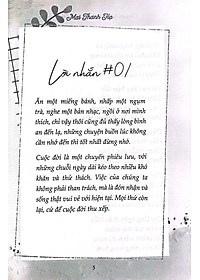 Mai Thanh Hạ
Lời nhắn #01
Ăn một miếng bánh, nhấp một ngụm
trà, nghe một bản nhạc, ngồi ở nơi mình
thích, chỉ vậy thôi cũng đủ thấy lòng bình
an đến lạ, những chuyện buồn lúc không
cần nhớ đến thì tốt nhất đừng nhớ.
Cuộc đời là một chuyến phiêu lưu, với
những chuỗi ngày dài kéo theo nhiều khó
khăn và thử thách. Việc của chúng ta
không phải than trách, mà là đón nhận và
sống thật vui vẻ với hiện tại. Mọi thứ còn
lại, cứ để cuộc đời thu xếp.
5